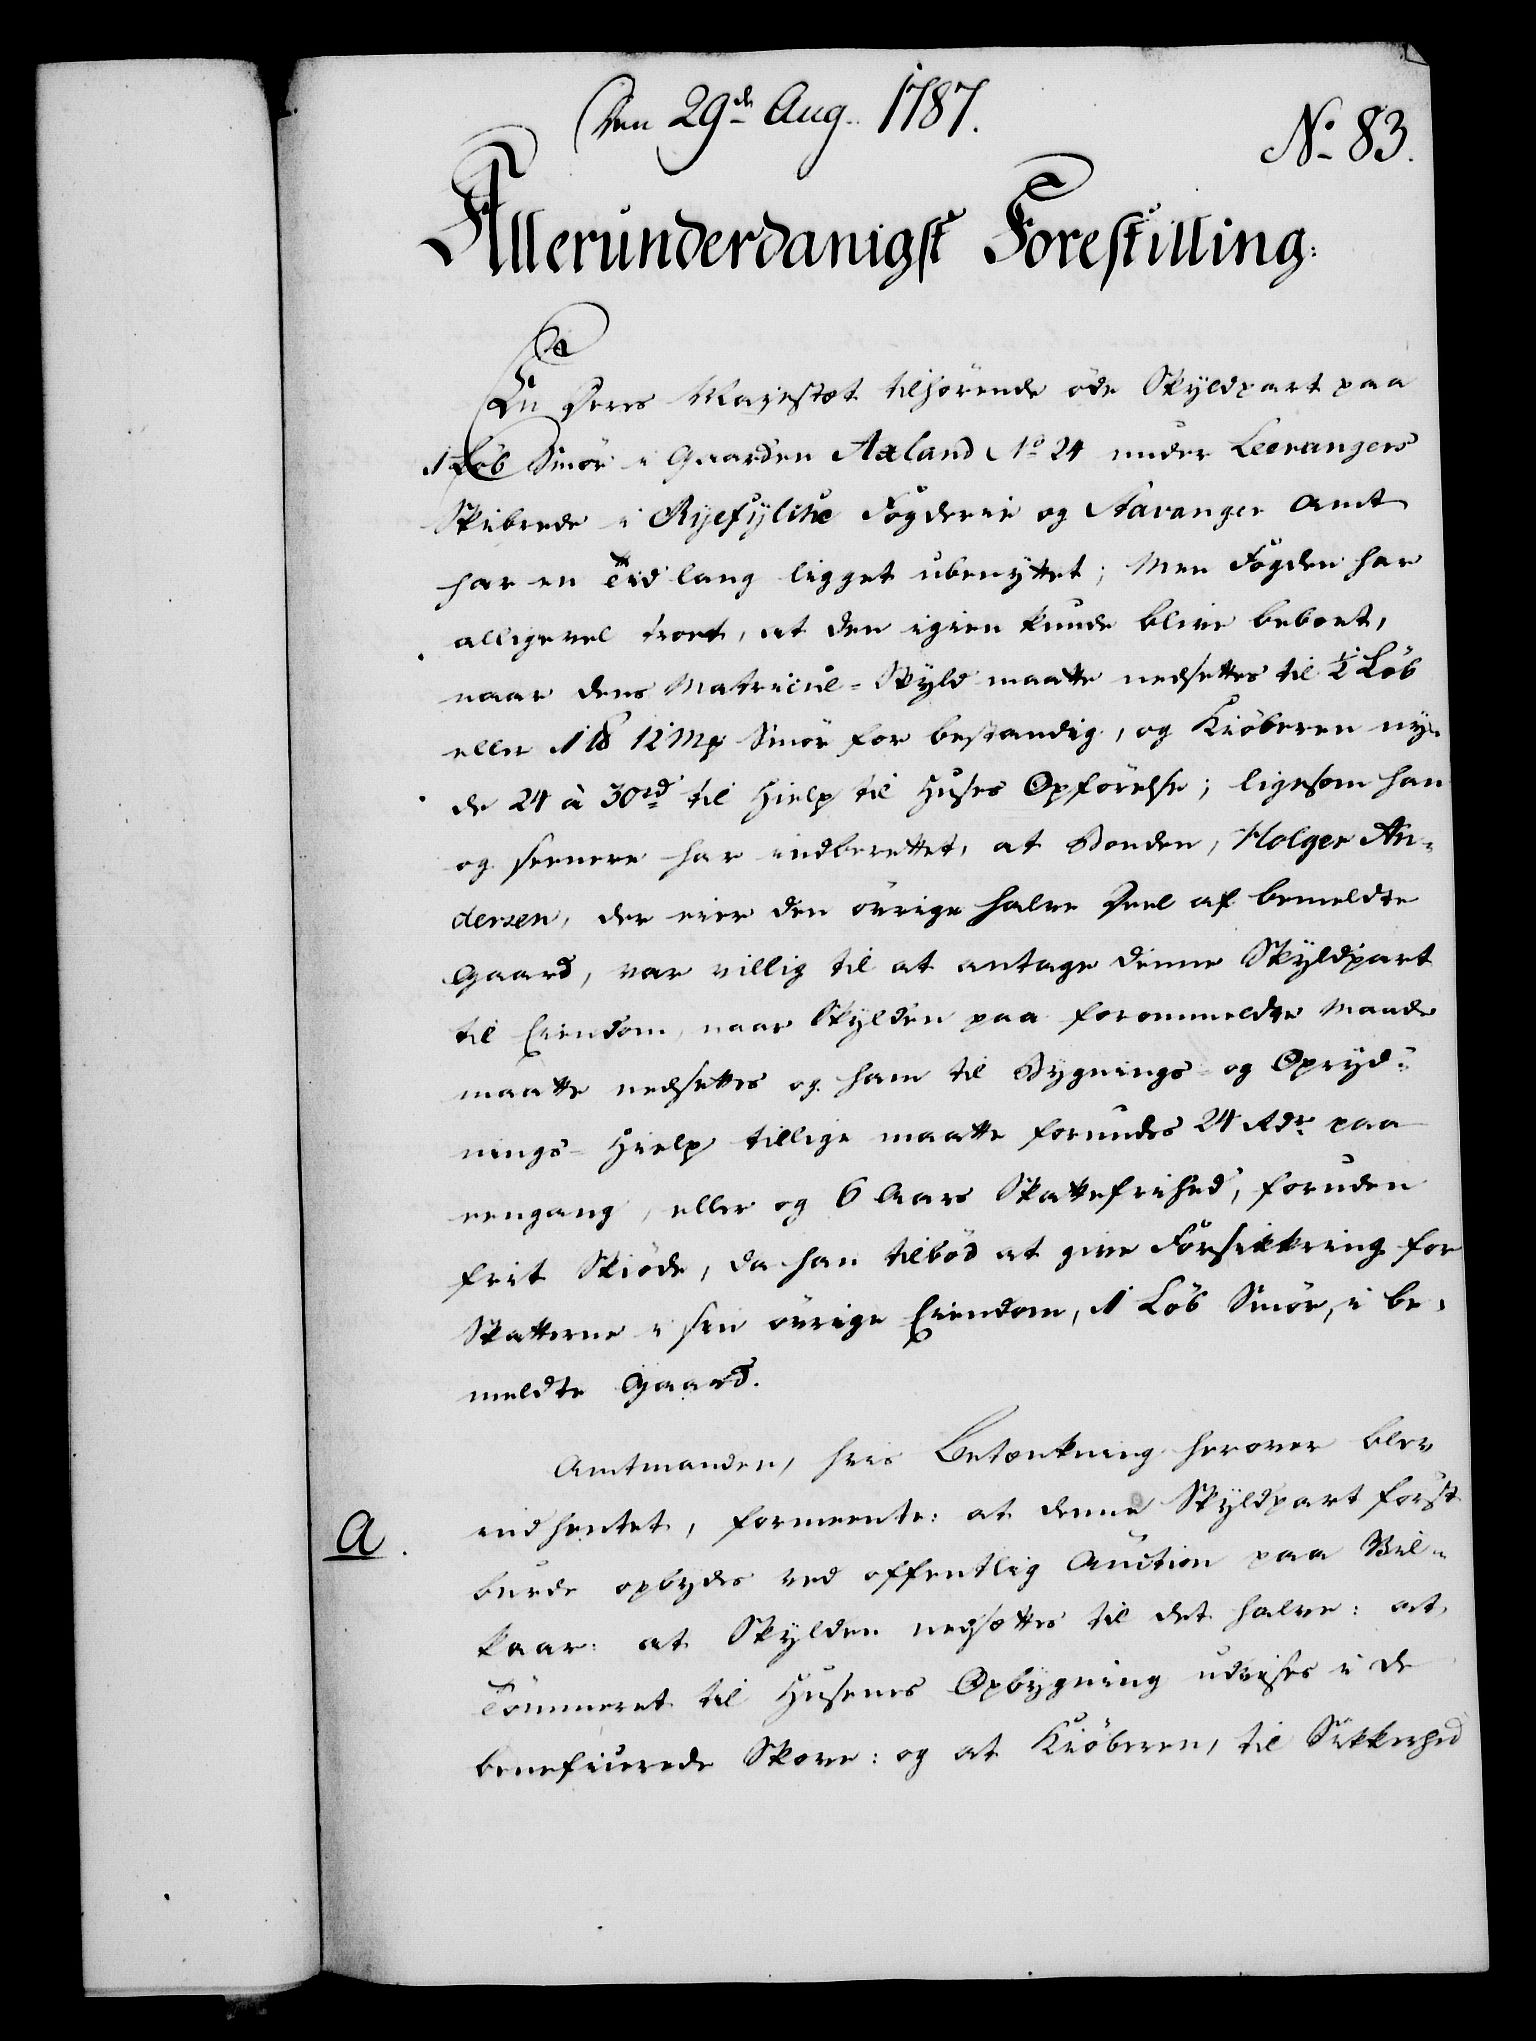 Den 29de Aug. 1787.
No. 83.
Allerunderdanigst Forestilling:
En Deres Majestæt tilhørende øde Skyldpart paa
1 Løb Smør i Gaarden Axland No 24 under Leerangers
Skibrede i Ryefylke Fogderie og Stavanger Amt
har en Tid lang ligget ubenyttet; Men Fogden har
alligevel troet, at den igien kunde blive beboet,
naar dens Matricul-Skyld maatte nedsettes til ½ Løb
eller 1 Pd 12 Mp Smør for bestandig, og Kiøberen ny-
de 24 à 30 rd til Hielp til Huses Opførelse; ligesom han
og senere har indberettet, at Bonden, Holger An-
dersen, der eier den øvrige halve Deel af bemeldte
Gaard, var villig til at antage denne Skyldpart
til Eiendom, naar Skylden paa forommeldte Maade
maatte nedsettes og ham til Bygnings- og Opryd-
nings-Hielp tillige maatte forundes 24 Rdr paa
eengang, eller og 6 Aars Skattefrihed, foruden
frit Skiøde, da han tilbød at give Forsikkring for
Skatterne i sin øvrige Eiendom, 1 Løb Smør, i be-
meldte Gaard.
Amtmanden, hvis Betænkning herover blev
A.
indhentet, formeente: at denne Skyldpart først
burde opbydes ved offentlig Auction paa Vil-
kaar: at Skylden nedsættes til det halve: at
Tømmeret til Husenes Opbygning udvises i de
beneficerede Skove: og at Kiøberen, til Sikkerhed